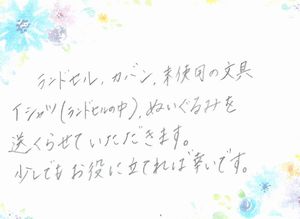 ランドセル, カバン, 未使用の文具
Tシャツ(ランドセルの中), ぬいぐるみを
送くらせていただきます。
少しでもお役に立てれば幸いです。